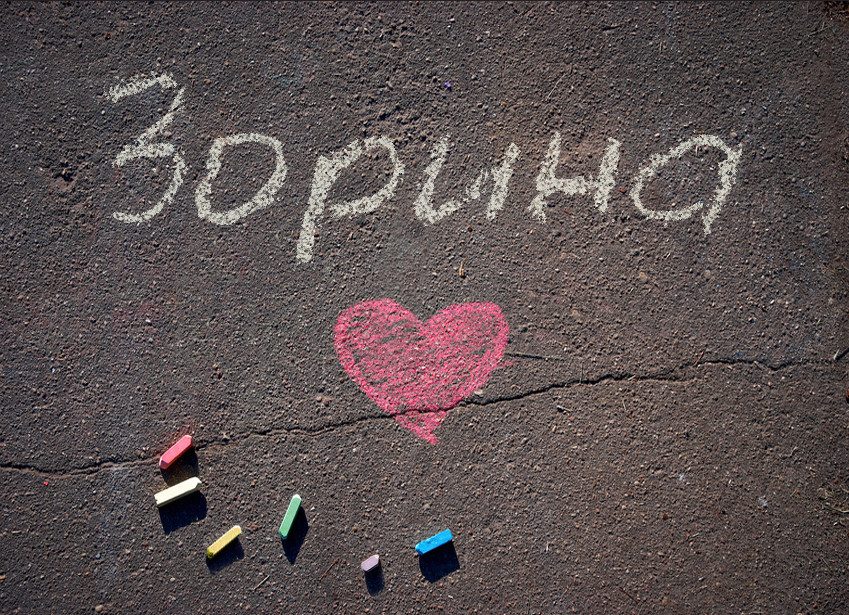 Зорина